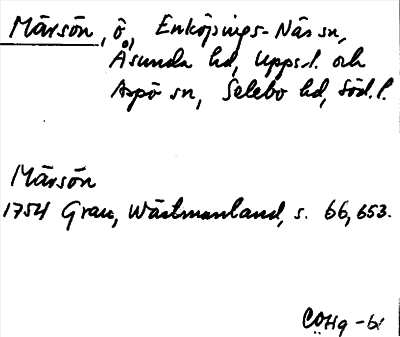 Märsön, ö, Enköpings-Näs sn,
Åsunda hd, Upps. l. och
Aspö sn, Selebo hd, Söd. l.
Märsön
1754 Grau, Wästmanland, s. 66, 653.